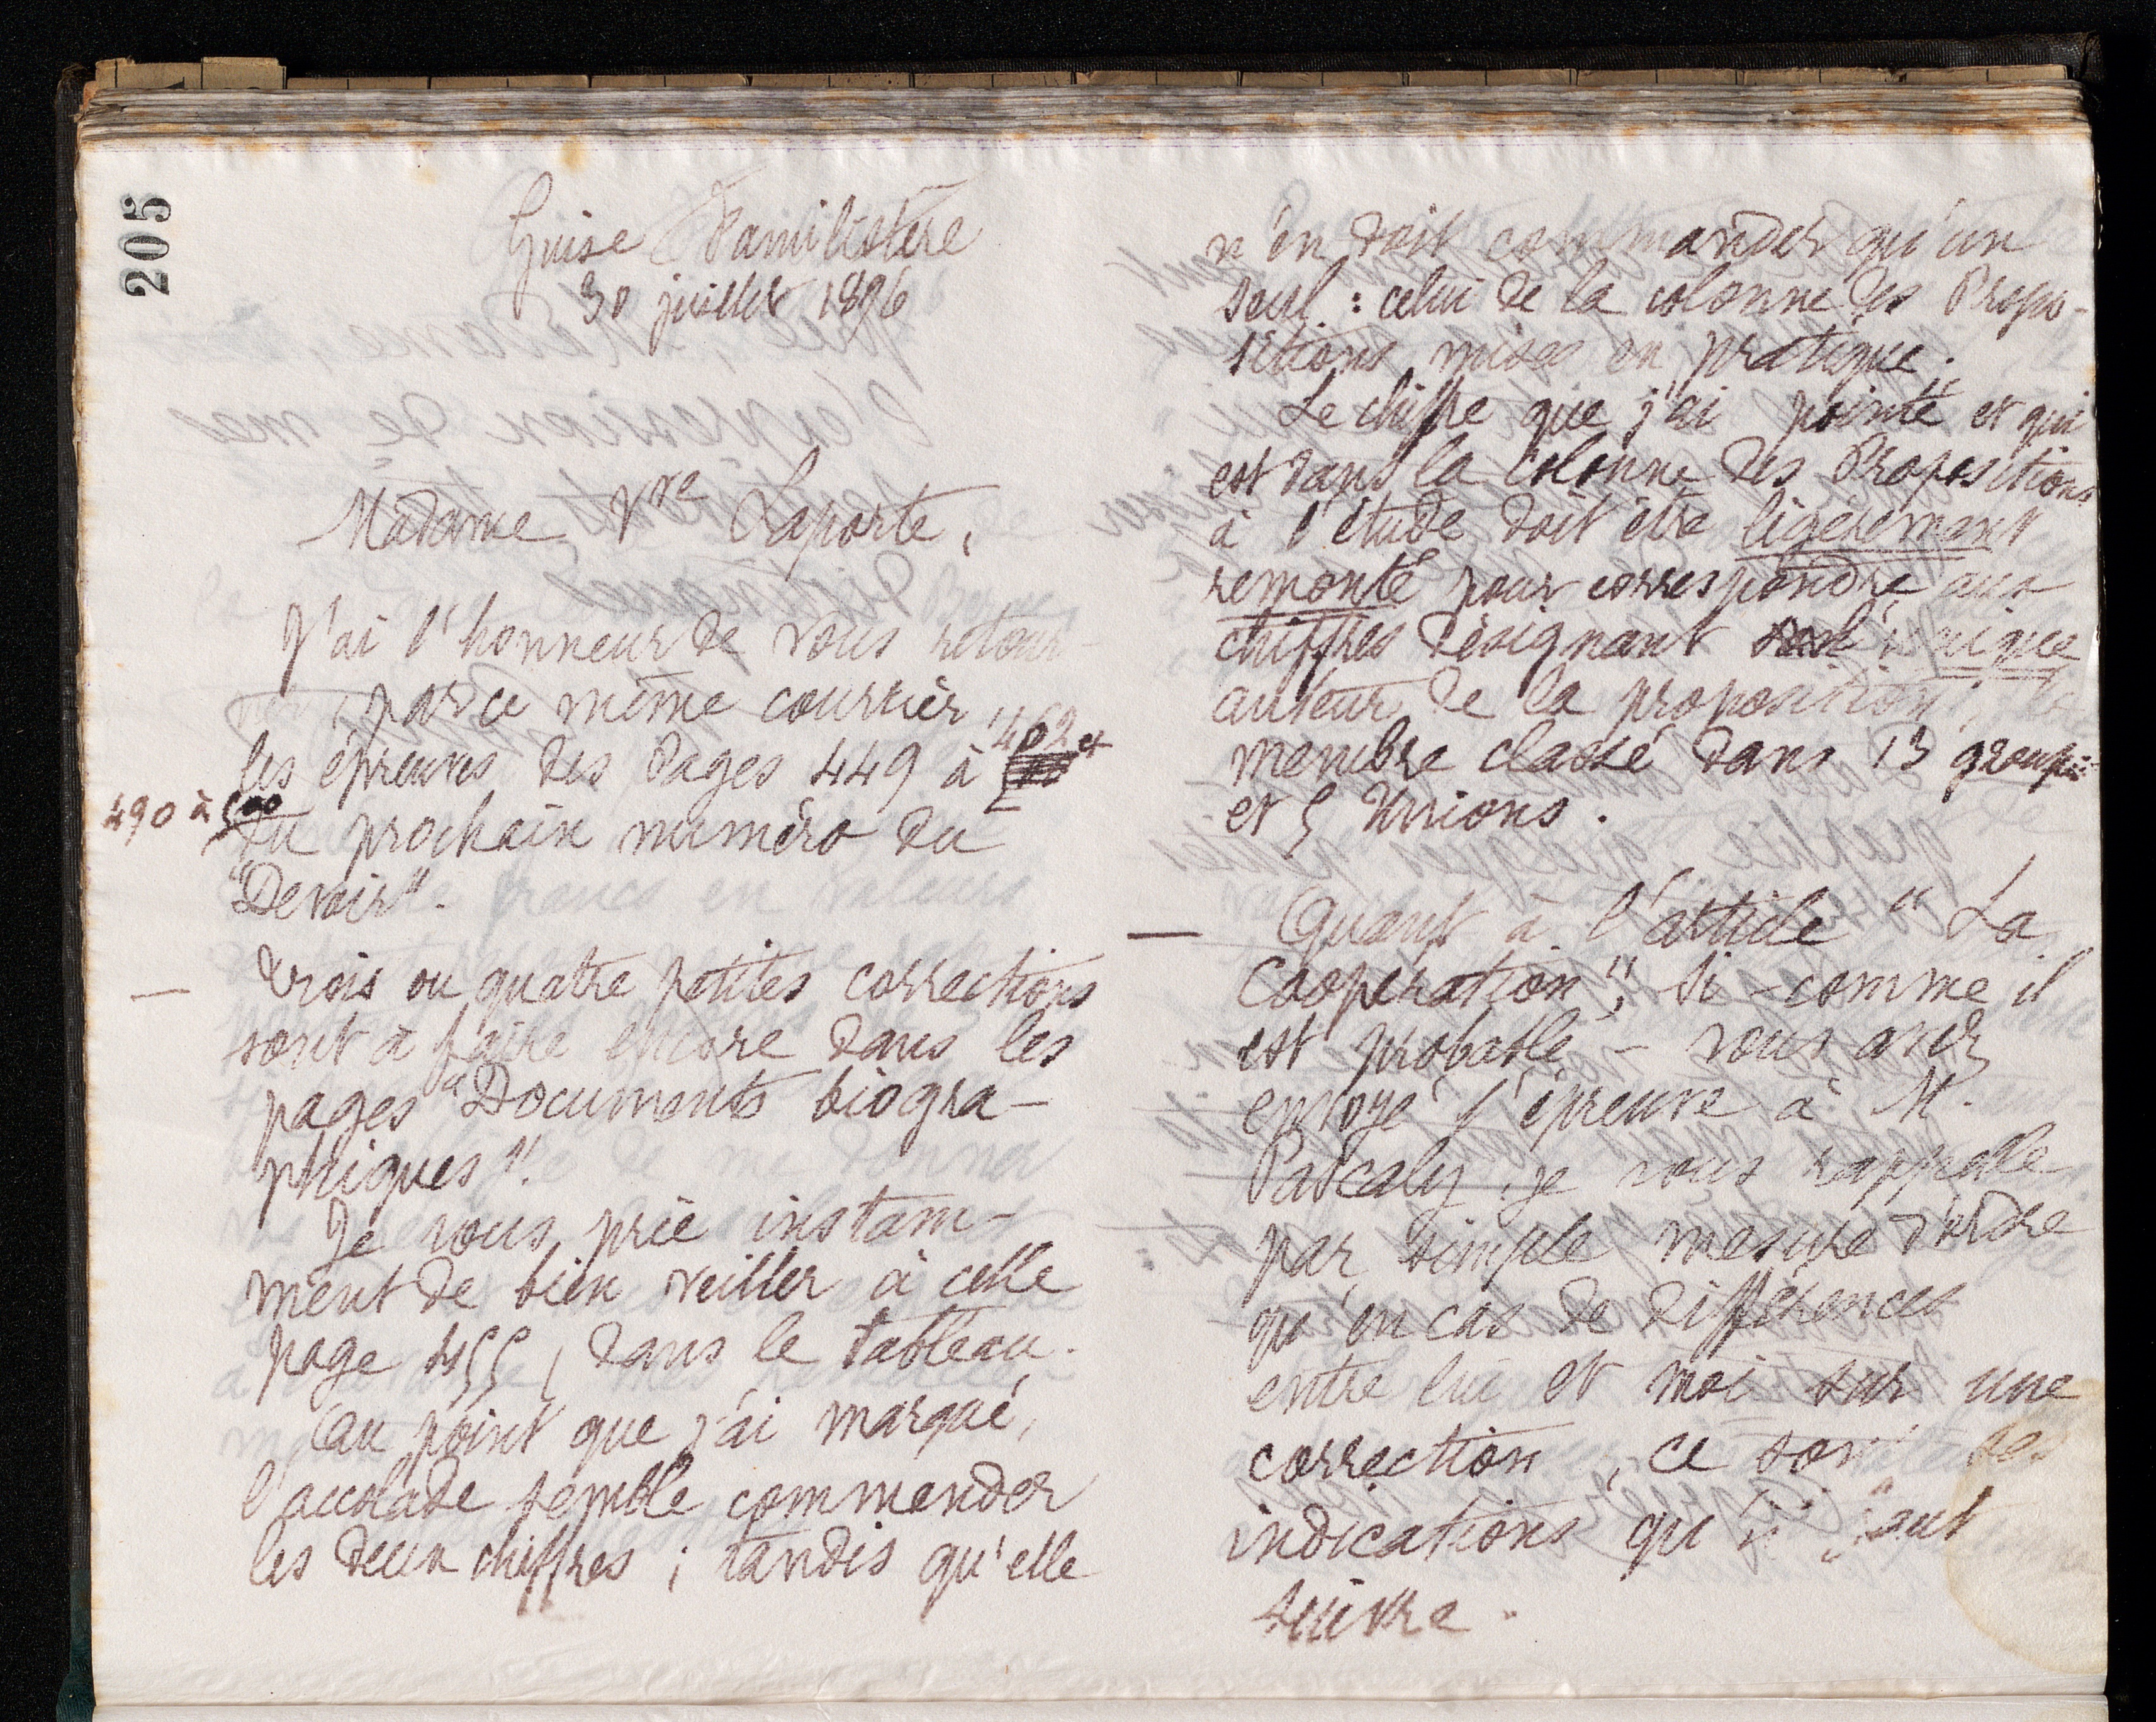 205
Guise Familistère
30 juillet 1896
Madame Vve Laporte,
J'ai l'honneur de vous retour-
ner, par ce même courrier,
les épreuves des pages 449 à 462 et
490 à 500
du prochain numéro du
"Devoir".
— Trois ou quatre petites corrections
sont à faire encore dans les
pages "Documents biogra-
phiques".
Je vous prie instam-
ment de bien veiller à celle
page 455, dans le tableau.
Au point que j'ai marqué,
l'accolade semble commander
les deux chiffres ; tandis qu'elle
n'en doit commander qu'un
seul : celui de la colonne des Propo-
sitions mises en pratique.
Le chiffre que j'ai "pointé" et qui
est dans la colonne des Propositions
à l'étude doit être légèrement
remonté pour correspondre aux
chiffres désignant l'unique
auteur de la proposition, le
membre classé dans 13 groupes
et 5 Unions.
— Quant à l'article "La
Coopération", si - comme il
est probable - vous avez
envoyé l'épreuve à M.
Pascaly, je vous rappelle
par simple mesure d'ordre
qu'en cas de différences
entre lui et moi sur une
correction, ce sont ses
indications qu'il faut
suivre.